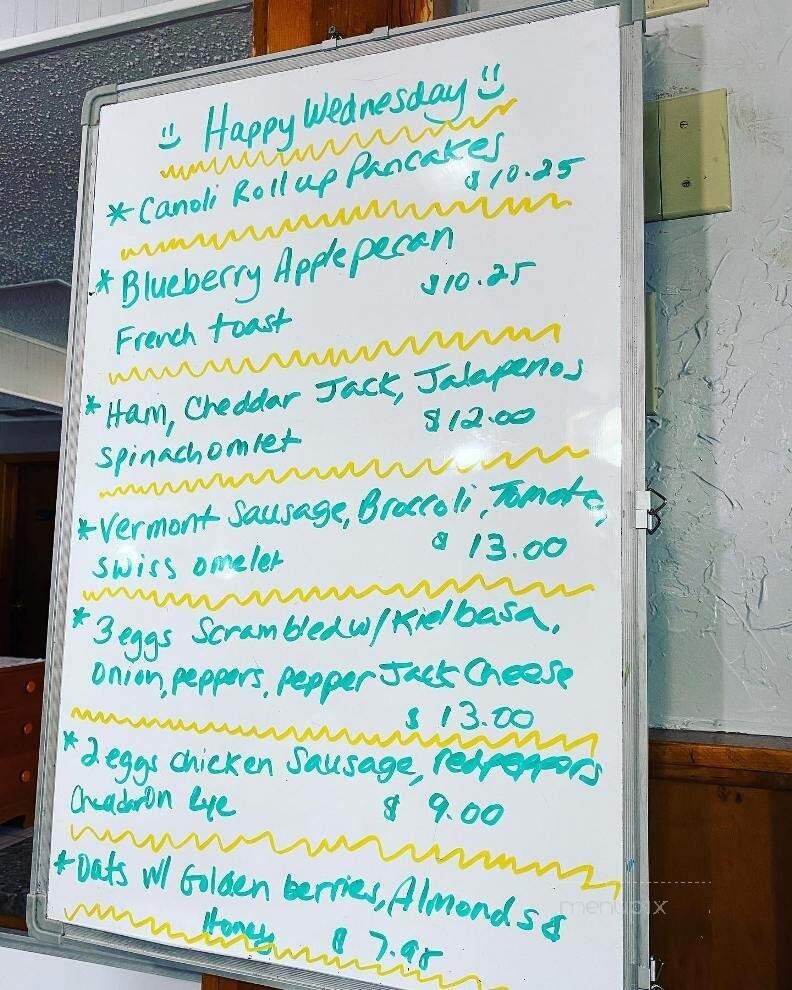 Happy Wednesday
* Canoli Roll up Pancakes
$10.25
* Blueberry Apple pecan
$10.25
French toast
* Ham, Cheddar Jack, Jalapenos
$12.00
spinach omlet
* Vermont Sausage, Broccoli, Tomato,
$13.00
swiss omelet
* 3 eggs Scrambled w/ Kielbasa,
onion, peppers, pepper Jack Cheese
$13.00
* 2 eggs chicken Sausage, red peppers
Cheddar On Rye
$9.00
* Oats w/ Golden berries, Almonds &
Honey $7.95
menupix